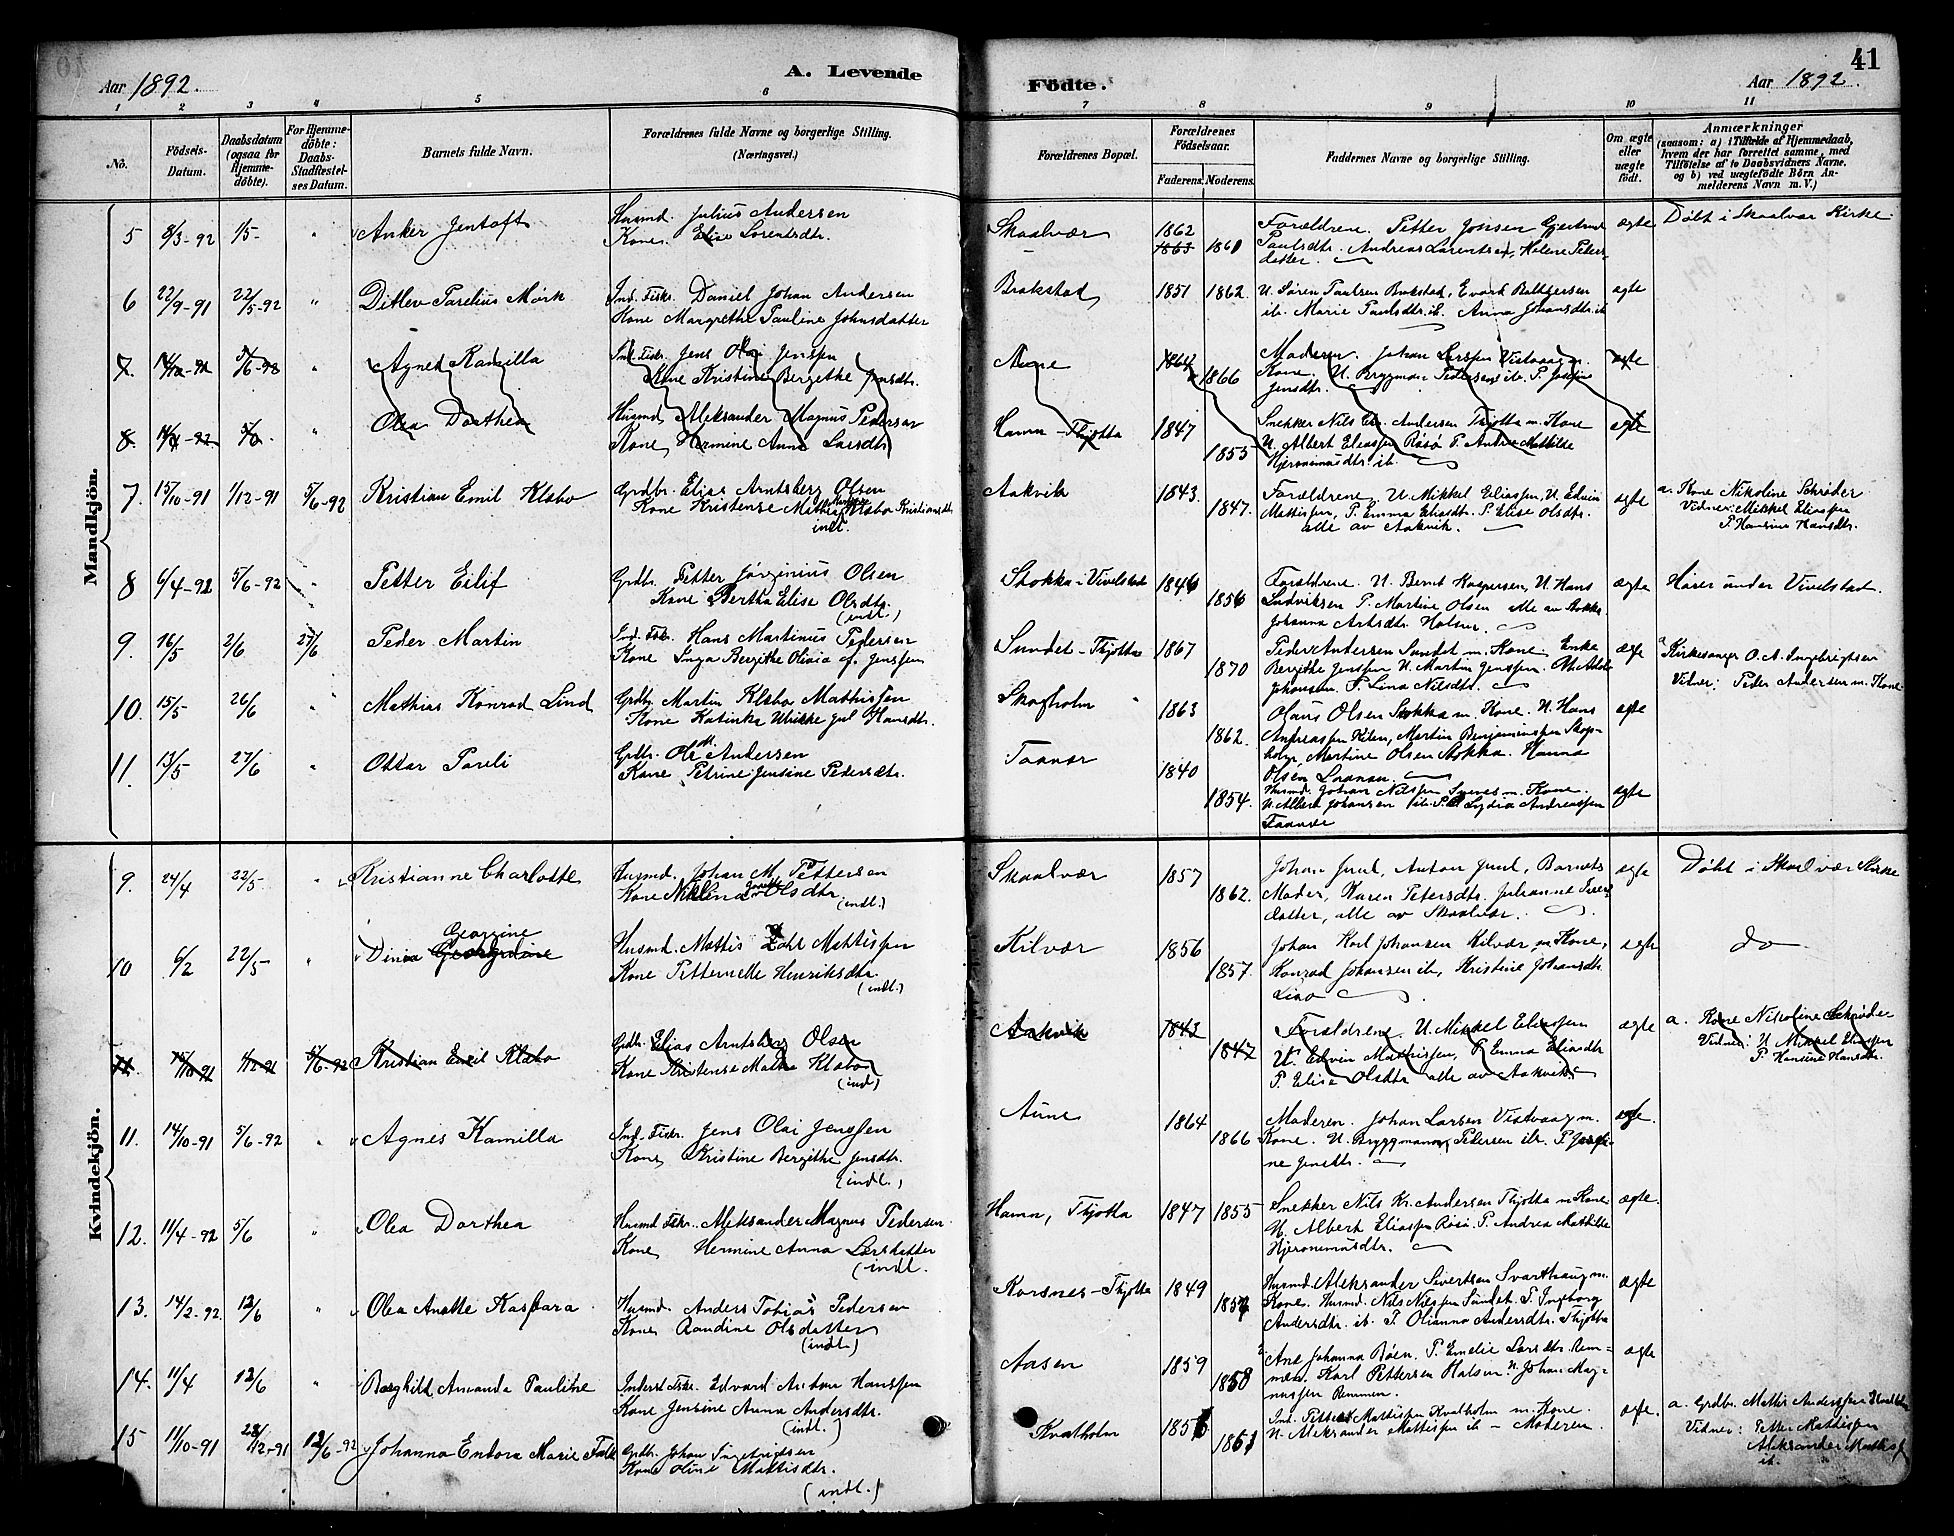 Aar 1892.
A. Levende
Fødte.
Aar 1892.
41
1 2 3 4 5 6 7 8 9 10 11
No.
Fødsels-Datum.
Daabsdatum (ogsaa for Hjemmedøbte).
For Hjemmedøbte: Daabs-Stadfæstelses Datum.
Barnets fulde Navn.
Forældrenes fulde Navne og borgerlige Stilling. (Næringsvei.)
Forældrenes Bopæl.
Forældrenes Fødselsaar.
Faderens. Moderens.
Faddernes Navne og borgerlige Stilling.
Om ægte eller uægte født.
Anmærkninger (saasom: a) i Tilfælde af Hjemmedaab, hvem der har forrettet samme, med Tilføielse af to Daabsvidners Navne. og b) ved uægtefødte Børn Anmelderens Navn m. V.)
Mandkjøn.
5 8/3-92 1/5- " Anker Jentoft
Husmd. Julius Andersen
Kone Elise Lorentsdtr.
Skaalvær 1862 1863 1861
Forældrene. Petter Jonsen Gjertrud
Paulsdtr. Andreas Larentsen, Helene Peders-
datter.
ægte
Døbt i Skaalvær Kirke
6 22/9-91 22/5-92 " Ditlev Parelius Mørk
Ind. Fisk. Daniel Johan Andersen
Kone Margrethe Pauline Johnsdatter
Brakstad 1851 1862.
U. Søren Paulsen Brakstad, Evard Baltzersen
ib. Marie Paulsdtr. ib. Anna Johansdtr. ib
ægte
7. 14/10-91 5/6-92 " Agnes Kamilla
Ind. Fisk. Jens Olai Jenssen
Kone Kristine Bergitte Jensdtr.
Aune 1864 1866
Moderen. Johan Larssen Vistvaag m.
Kone. U. Bryggman Pedersens ib. P. Josefine
Jensdtr.
ægte
8 11/4-92 5/6. " Olea Dorthea
Husmd. Aleksander Magnus Pedersen
Kone Hermine Anna Larsdtr.
Hamn-Thjøtta 1847 1855
Snekker Nils Kr. Andersen Thjøtta m. Kone
U. Albert Eliassen Røsø P. Andrea Mathilde
Hjeronimusdtr. ib.
ægte
7. 15/10-91 1/12-91 5/6-92 Kristian Emil Klæbo
Grdbr. Elias Arntsberg Olsen
Kone Kristense Mathea Klæbo Kristiansdtr.
indl.
Aakvik 1843. 1847.
Forældrene, U. Mikkel Eliassen, U. Edvin
Mattissen, P. Emma Eliasdtr. P. Elise Olsdtr.
alle av Aakvik.
ægte
a. Kone Nikoline Schrøder
Vidner: Mikkel Eliassen
P. Hansine Hansdtr.
8 6/4-92 5/6-92 " Petter Eilif
Grdbr. Petter Jørginius Olsen
Kone Bertha Elise Olsdtr.
(indl.)
Stokka-Vivelstad 1846 1856
Forældrene. U. Bernt Kaspersen, U. Hans
Ludviksen P. Martine Olsen alle av Stokka
Johanna Arntsdtr. Halsen.
ægte
Hører under Vivelstad.
9. 16/5 2/6 27/6 Peder Martin
Ind. Fisk. Hans Martinus Pedersen
Kone Inga Bergithe Olivia af. Jenssen
Sundet-Thjøtta 1867 1870
Peder Andersen Sundet m. Kone Enke
Bergitte Jenssen U. Martin Jenssen.
Johansen. P. Lina Nilsdtr.
ægte
a Kirkesanger O. A. Ingebrigtsen
Vidner: Peder Andersen m. Kone
10. 15/5 26/6 " Mathias Konrad Lind
Grdbr. Martin Klæbo Mathissen
Kone Katinka Ulrikke Jul Hansdtr.
Skogholm 1863 1862.
Olaus Olsen Stokka m. Kone. U. Hans
Andreassen Kilen, Martin Benjaminssen Skog-
holm, Martine Olsen Stokka. Hanna
Olsen
ægte
11. 13/5 27/6 " Ottar Pareli
Grdbr. Ole Andersen
Kone Petrine Jensine Pedersdtr.
Taavær 1840 1854.
Husmd. Johan Nilssen Sven m. Kone.
U. Albert Johansen ib. P. Lydia Andreassen
Taavær
ægte
Kvindekjøn.
9. 24/4 22/5- " Kristianne Charlotte
Husmd. Johan M. Pettersen
Kone Niklina Olsdtr.
(indl.)
Skaalvær 1857 1862.
Johan Juul, Anton Juul, Barnets
Moder, Karen Petersdtr. Julianne Peder-
datter, alle av Skaalvær.
ægte
Døbt i Skaalvær Kirke
10 6/2 22/5- " Dina Georgine Georgidine
Husmd. Mattis Zahl Mattissen
Kone Pitternelle Henriksdtr.
(indl.)
Kilvær 1856 1857.
Johan Karl Johansen Kilvær m. Kone,
Konrad Johansen ib, Kristine Johansdtr.
ægte
do
11. 15/10-91 1/12-91 5/6-92 Kristian Emil Klæbo
Grdbr. Elias Arntsberg Olsen
Kone Kristense Mathea Klæbo
(indl)
Aakvik 1843 1847
Forældrene U. Mikkel Eliassen
U. Edvin Mathissen, P. Emma Eliasdtr.
P. Elise Olsdtr. alle av Aakvik.
ægte
a. Kone Nikoline Schrøder
Vidner: U. Mikkel Eliassen
P. Hansine Hansdtr.
11. 14/10-91 5/6-92 " Agnes Kamilla
Ind. Fisk. Jens Olai Jenssen
Kone Kristine Bergitte Jensdtr.
(indl.)
Aune 1864 1866
Moderen. Johan Larsen Vistvaag m.
Kone. U. Bryggmann Pedersen ib. P. Josefi-
ne Jensdtr.
ægte.
12. 11/4-92 5/6 " Olea Dorthea
Husmd Fskr. Aleksander Magnus Pedersen
Kone Hermine Anna Larsdatter
(indl.
Hamn, Thjøtta 1847 1855
Snekker Nils Kr. Andersen Thjøtta m Kone
U. Albert Eliassen Røsø. P. Andrea Mathilde
Hjeronimusdtr.
ægte.
13. 14/2-92. 12/6 " Olea Anette Kaspara
Husmd. Anders Tobias Pedersen
Kone Randine Olsdatter
(indl.)
Korsnes-Thjøtta 1849 1854
Husmd. Aleksander Sivertsen Svarthaug m.
Kone. Husmd. Nils Nilssen Sundet. P. Ingeborg
Andersdtr. ib. P. Olianna Andersdtr. Thjøtta
ægte
14. 11/4 12/6 " Borghild Amanda Pauline
Inderst Fskr. Edvard Anton Hanssen
Kone Jensine Anna Andersdtr.
(indl.)
Aasen 1859 1858
Ane Johanna Bøen. P. Emelie Larsdtr. Rem-
men. Karl Pettersen Halsen U. Johan Mag-
nussen Remmen.
ægte
15 11/10-91 28/12-91 12/6-92 Johanna Entora Marie Falk
Grdbr. Johan Ingebrigtsen
Kone Oline Mattisdtr.
(indl.)
Kvalholm 1856 1861
Ind. Petter Mattissen Kvalholm m. Kone.
U. Aleksander Mattissen ib - Moderen.
ægte.
a. Grdbr. Mattis Anderssen Kvalholm
Vidner: Petter Mattissen
Aleksander Mattissen
ib.